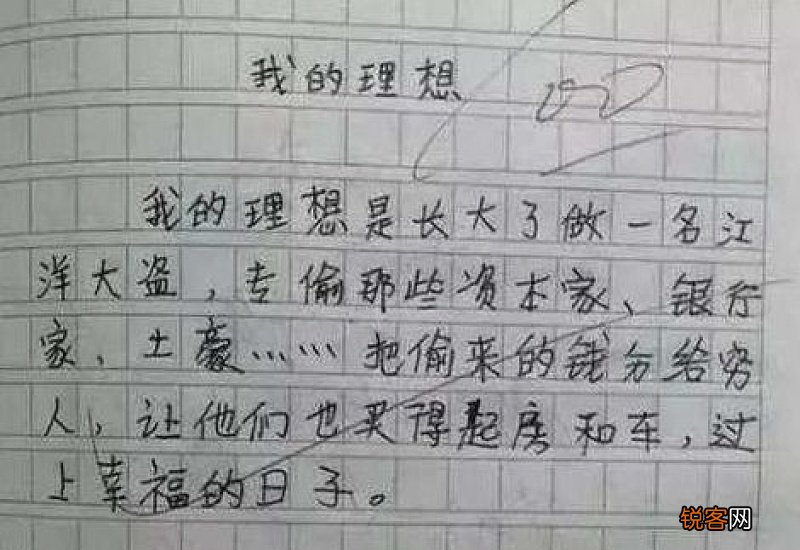 我的理想
我的理想是长大了做一名江
洋大盗，专偷那些资本家、银行
家、土豪……把偷来的钱分给穷
人，让他们也买得起房和车，过
上幸福的日子。
锐客网